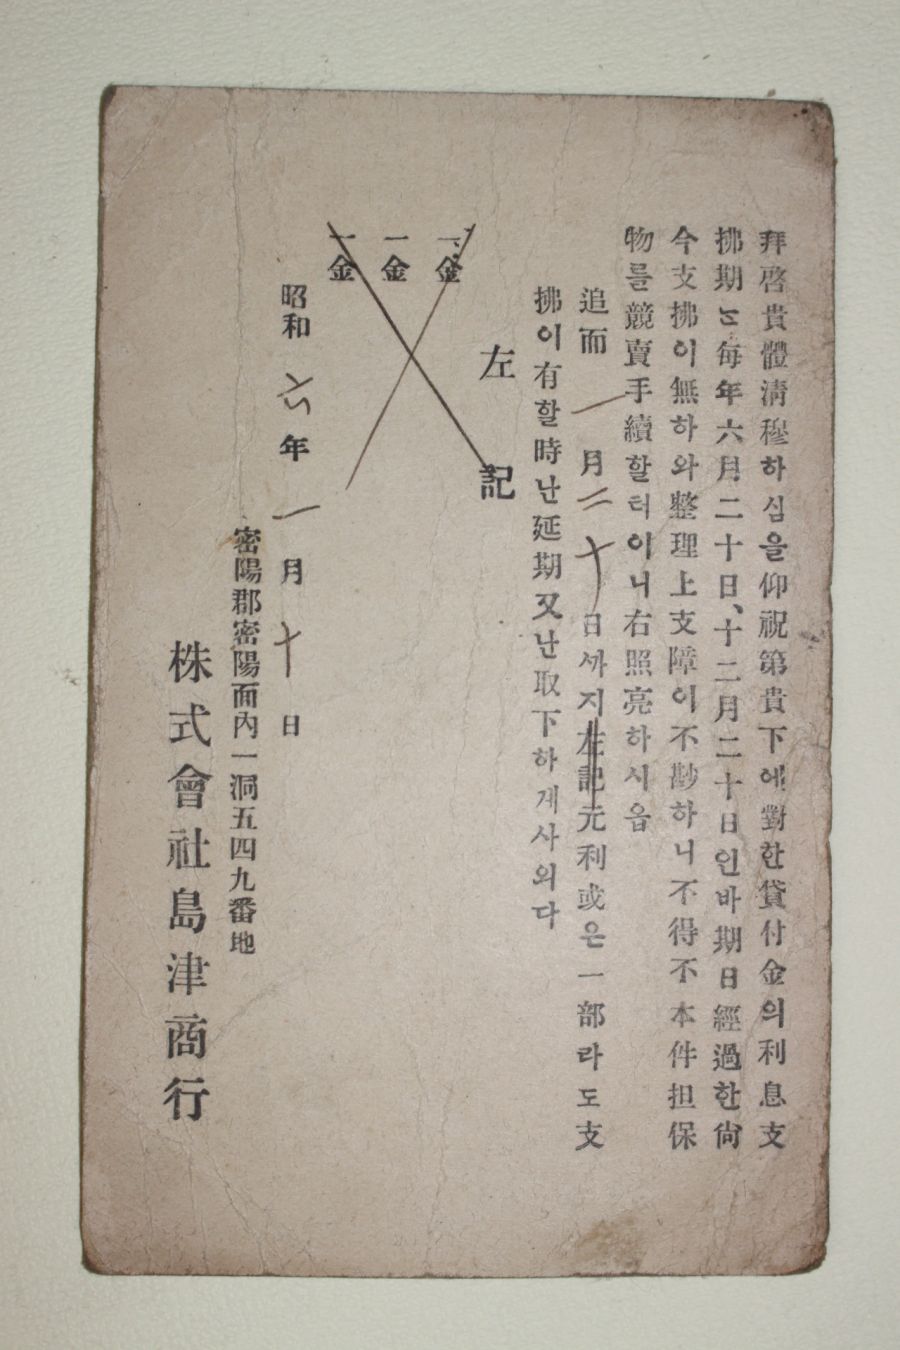 拜啓貴體淸穆하심을仰祝第貴下에對한貸付金의利息支
拂期는每年六月二十日、十二月二十日인바期日經過한尙
今支拂이無하와整理上支障이不尠하니不得不本件担保
物를競賣手續할터이니右照亮하시옵
追而 一 月 二十 日까지左記元利或은一部라도支
拂이有할時난延期又난取下하게사외다
左 記
一金
一金
一金
昭和 六 年 一 月 十 日
密陽郡密陽面內一洞五四九番地
株式會社島津商行